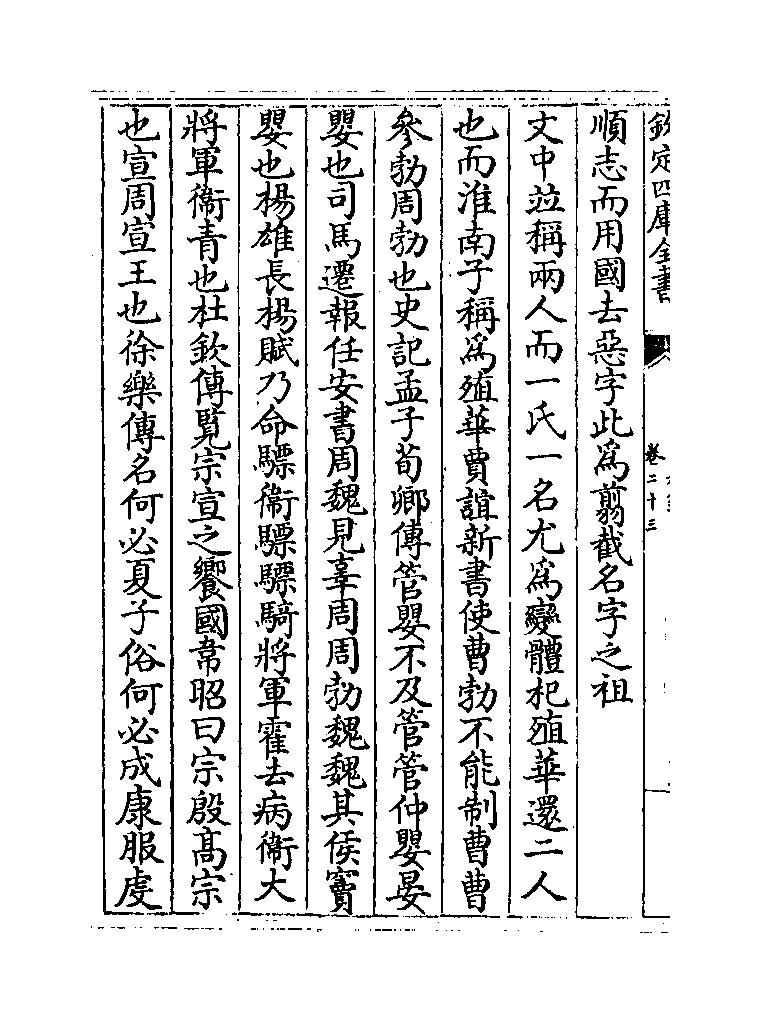 欽定四庫全書
卷二十三
順志而用國去惡字此為翦截名字之祖
文中並稱兩人而一氏一名尤為變體杞殖華還二人
也而淮南子稱為殖華賈誼新書使曹勃不能制曹曹
參勃周勃也史記孟子荀卿傳管嬰不及管管仲嬰晏
嬰也司馬遷報任安書周魏見辜周周勃魏魏其侯竇
嬰也楊雄長楊賦乃命驃衛驃驃騎將軍霍去病衛大
將軍衛青也杜欽傳覽宗宣之饗國韋昭曰宗殷髙宗
也宣周宣王也徐樂傳名何必夏子俗何必成康服虔